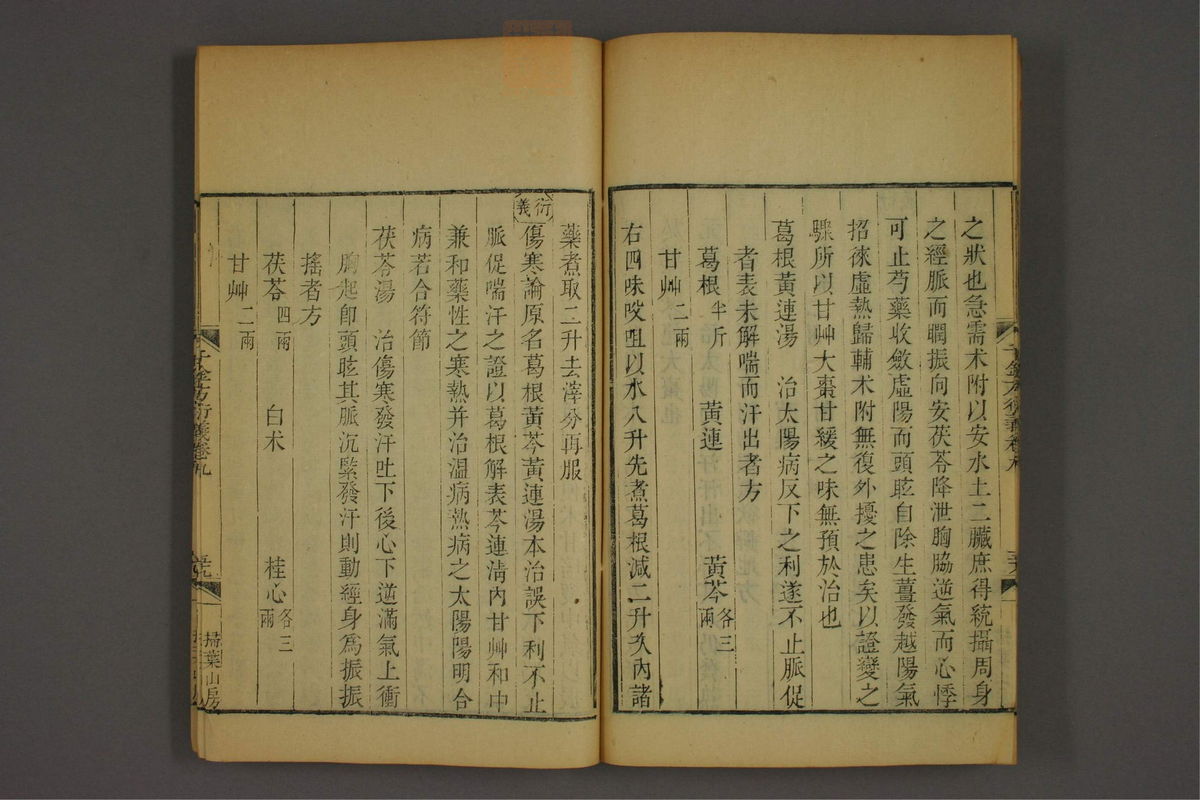 之狀也急需术附以安水土二臟庶得統攝周身
之經脈而瞤振向安茯苓降泄胸脇逆氣而心悸
可止芍藥收斂虛陽而頭眩自除生薑發越陽氣
招徠虛熱歸輔术附無復外擾之患矣以證變之
驟所以甘艸大棗甘緩之味無預於治也
葛根黃連湯 治太陽病反下之利遂不止脈促
者表未解喘而汗出者方
葛根半斤 黃連 黃芩各三兩
甘艸二兩
右四味㕮咀以水八升先煮葛根減二升內諸
藥煮取二升去滓分再服
衍義
傷寒論原名葛根黃芩黃連湯本治誤下利不止
脈促喘汗之證以葛根解表芩連淸內甘艸和中
兼和藥性之寒熱并治溫病熱病之太陽陽明合
病若合符節
茯苓湯 治傷寒發汗吐下後心下逆滿氣上衝
胸起卽頭眩其脈沉緊發汗則動經身爲振振
搖者方
茯苓四兩 白术 桂心各三兩
甘艸二兩
千金方衍義卷九
掃葉山房